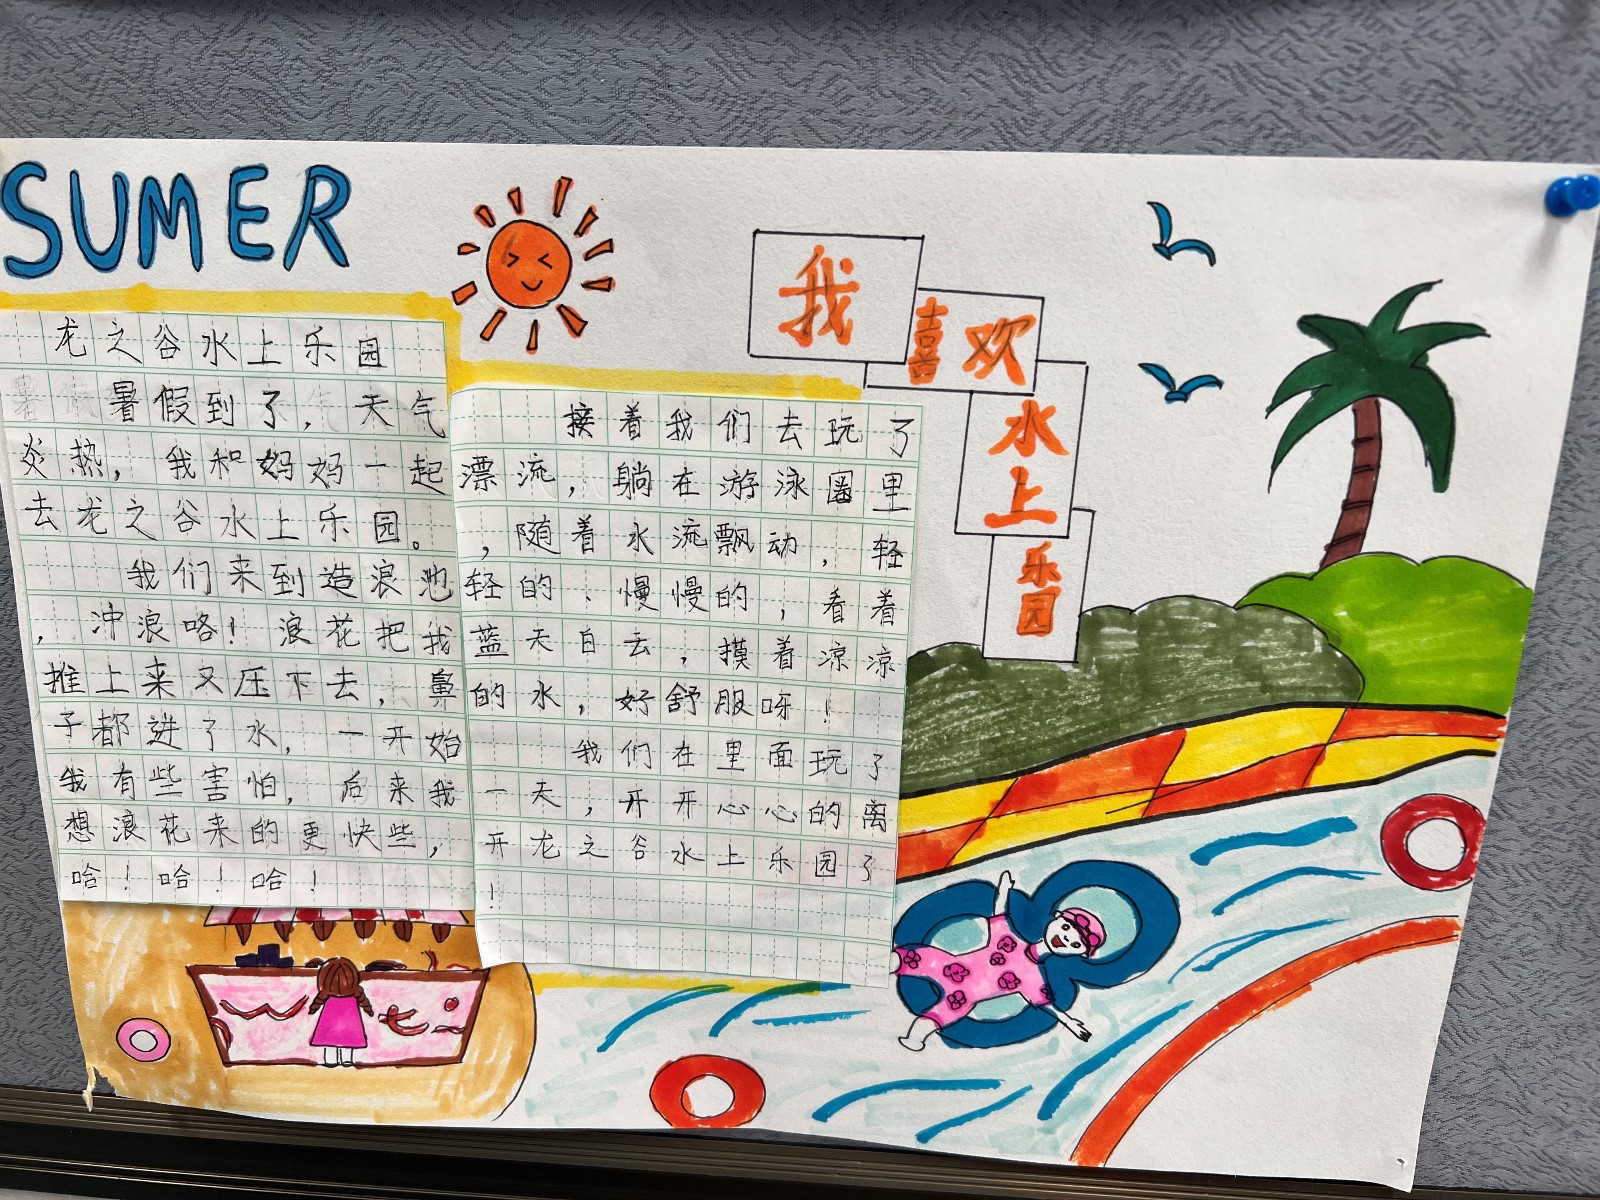 SUMER
龙之谷水上乐园
暑假到了，天气
炎热，我和妈妈一起
去龙之谷水上乐园。
我们来到造浪池
，冲浪咯！浪花把我
推上来又压下去，鼻
子都进了水，一开始
我有些害怕，后来我
想浪花来的更快些，
哈！哈！哈！
接着我们去玩了
漂流，躺在游泳圈里
，随着水流飘动，轻
轻的、慢慢的，看着
蓝天白云，摸着凉凉
的水，好舒服呀！
我们在里面玩了
一天，开开心心的离
开龙之谷水上乐园了
！
我
喜欢
水
上
乐
园